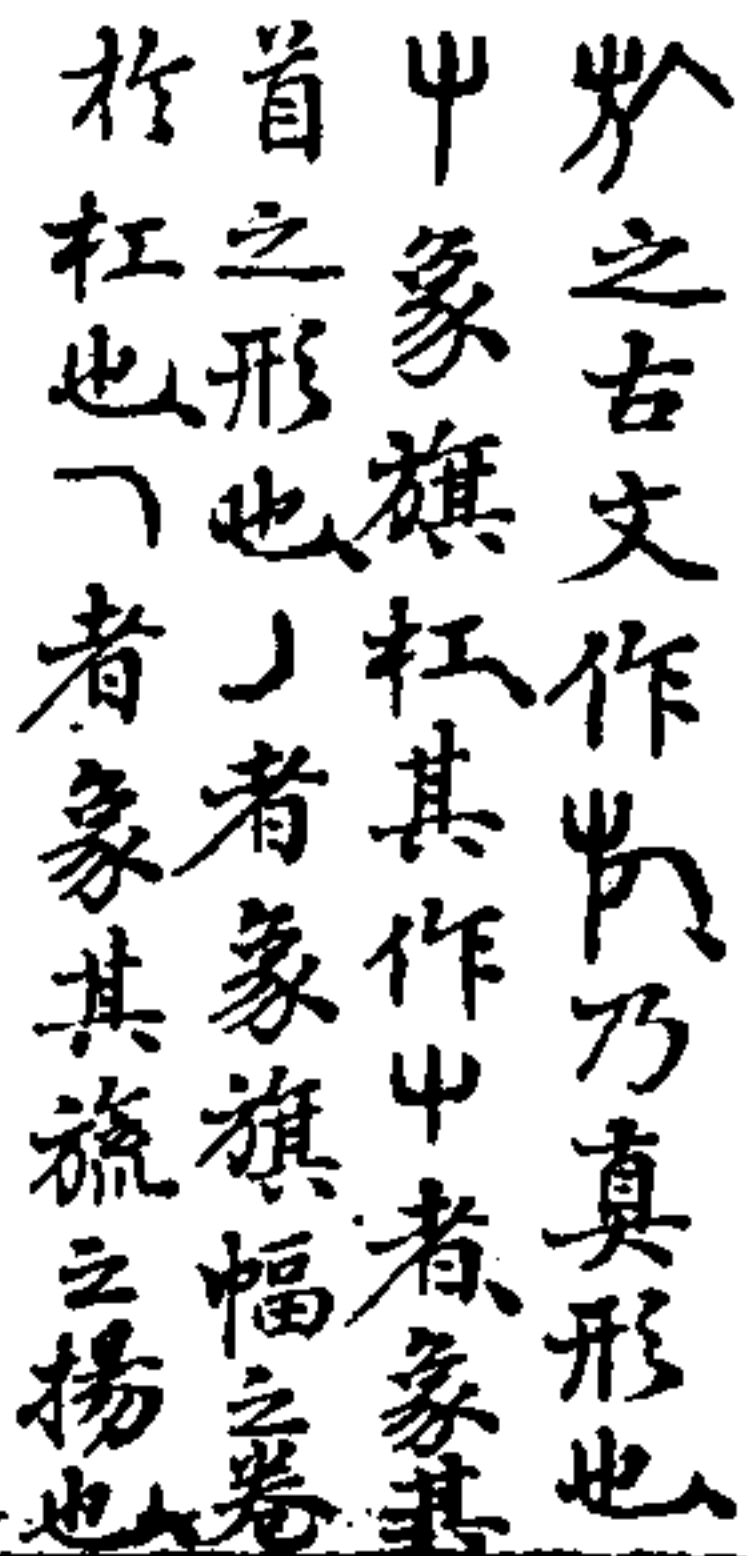 㫃之古文作乃真形也、
屮象旗杠、其作屮者、象其
首之形也、丿者象旗幅之卷
於杠也、㇕者象其旒之揚也、